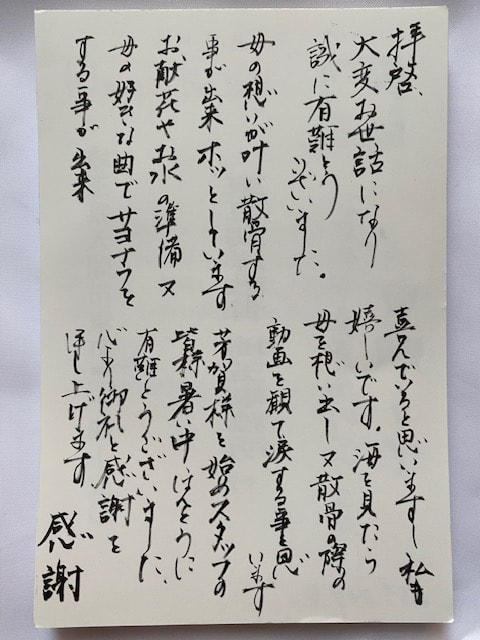 拝啓、
大変お世話になり
誠に有難とう
ございました。
母の想いが叶い散骨する
事が出来ホッとしています
お献花やお水の準備又
母の好きな曲でサヨナラを
する事が出来
喜んでいると思いますし私も
嬉しいです。海を見たら
母を想い出し又散骨の際の
動画を観て涙する事と思
います
芳賀様を始めスタッフの
皆様暑い中ほんとうに
有難とうございました、
心より御礼と感謝を
申し上げます
感謝